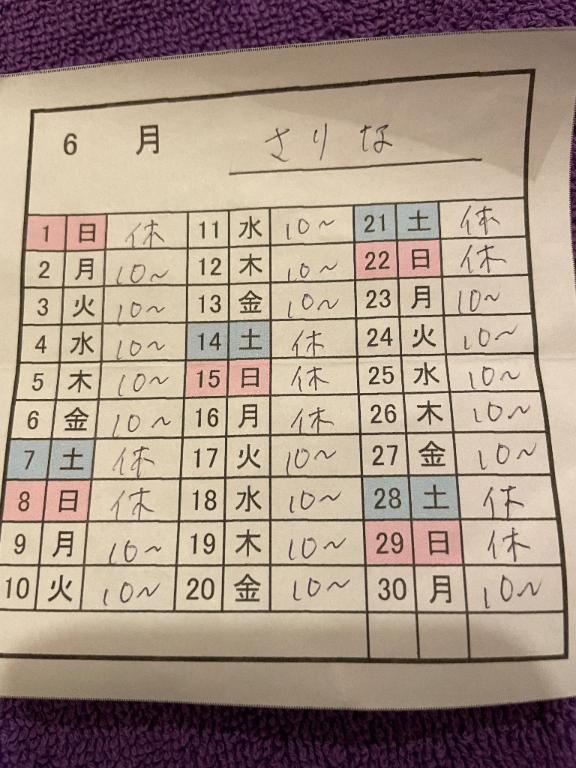 6 月 さりな
1 日 休 11 水 10〜 21 土 休
2 月 10〜 12 木 10〜 22 日 休
3 火 10〜 13 金 10〜 23 月 10〜
4 水 10〜 14 土 休 24 火 10〜
5 木 10〜 15 日 休 25 水 10〜
6 金 10〜 16 月 休 26 木 10〜
7 土 休 17 火 10〜 27 金 10〜
8 日 休 18 水 10〜 28 土 休
9 月 10〜 19 木 10〜 29 日 休
10 火 10〜 20 金 10〜 30 月 10〜